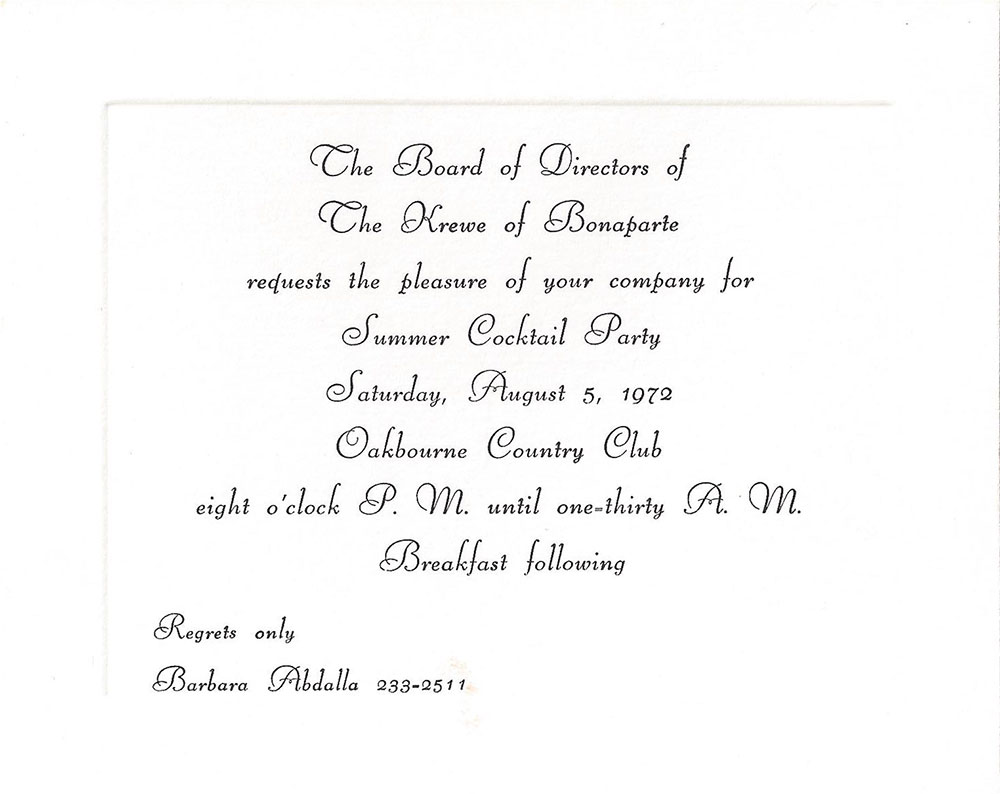 The Board of Directors of
The Krewe of Bonaparte
requests the pleasure of your company for
Summer Cocktail Party
Saturday, August 5, 1972
Oakbourne Country Club
eight o'clock P. M. until one-thirty A. M.
Breakfast following
Regrets only
Barbara Abdalla 233-2511